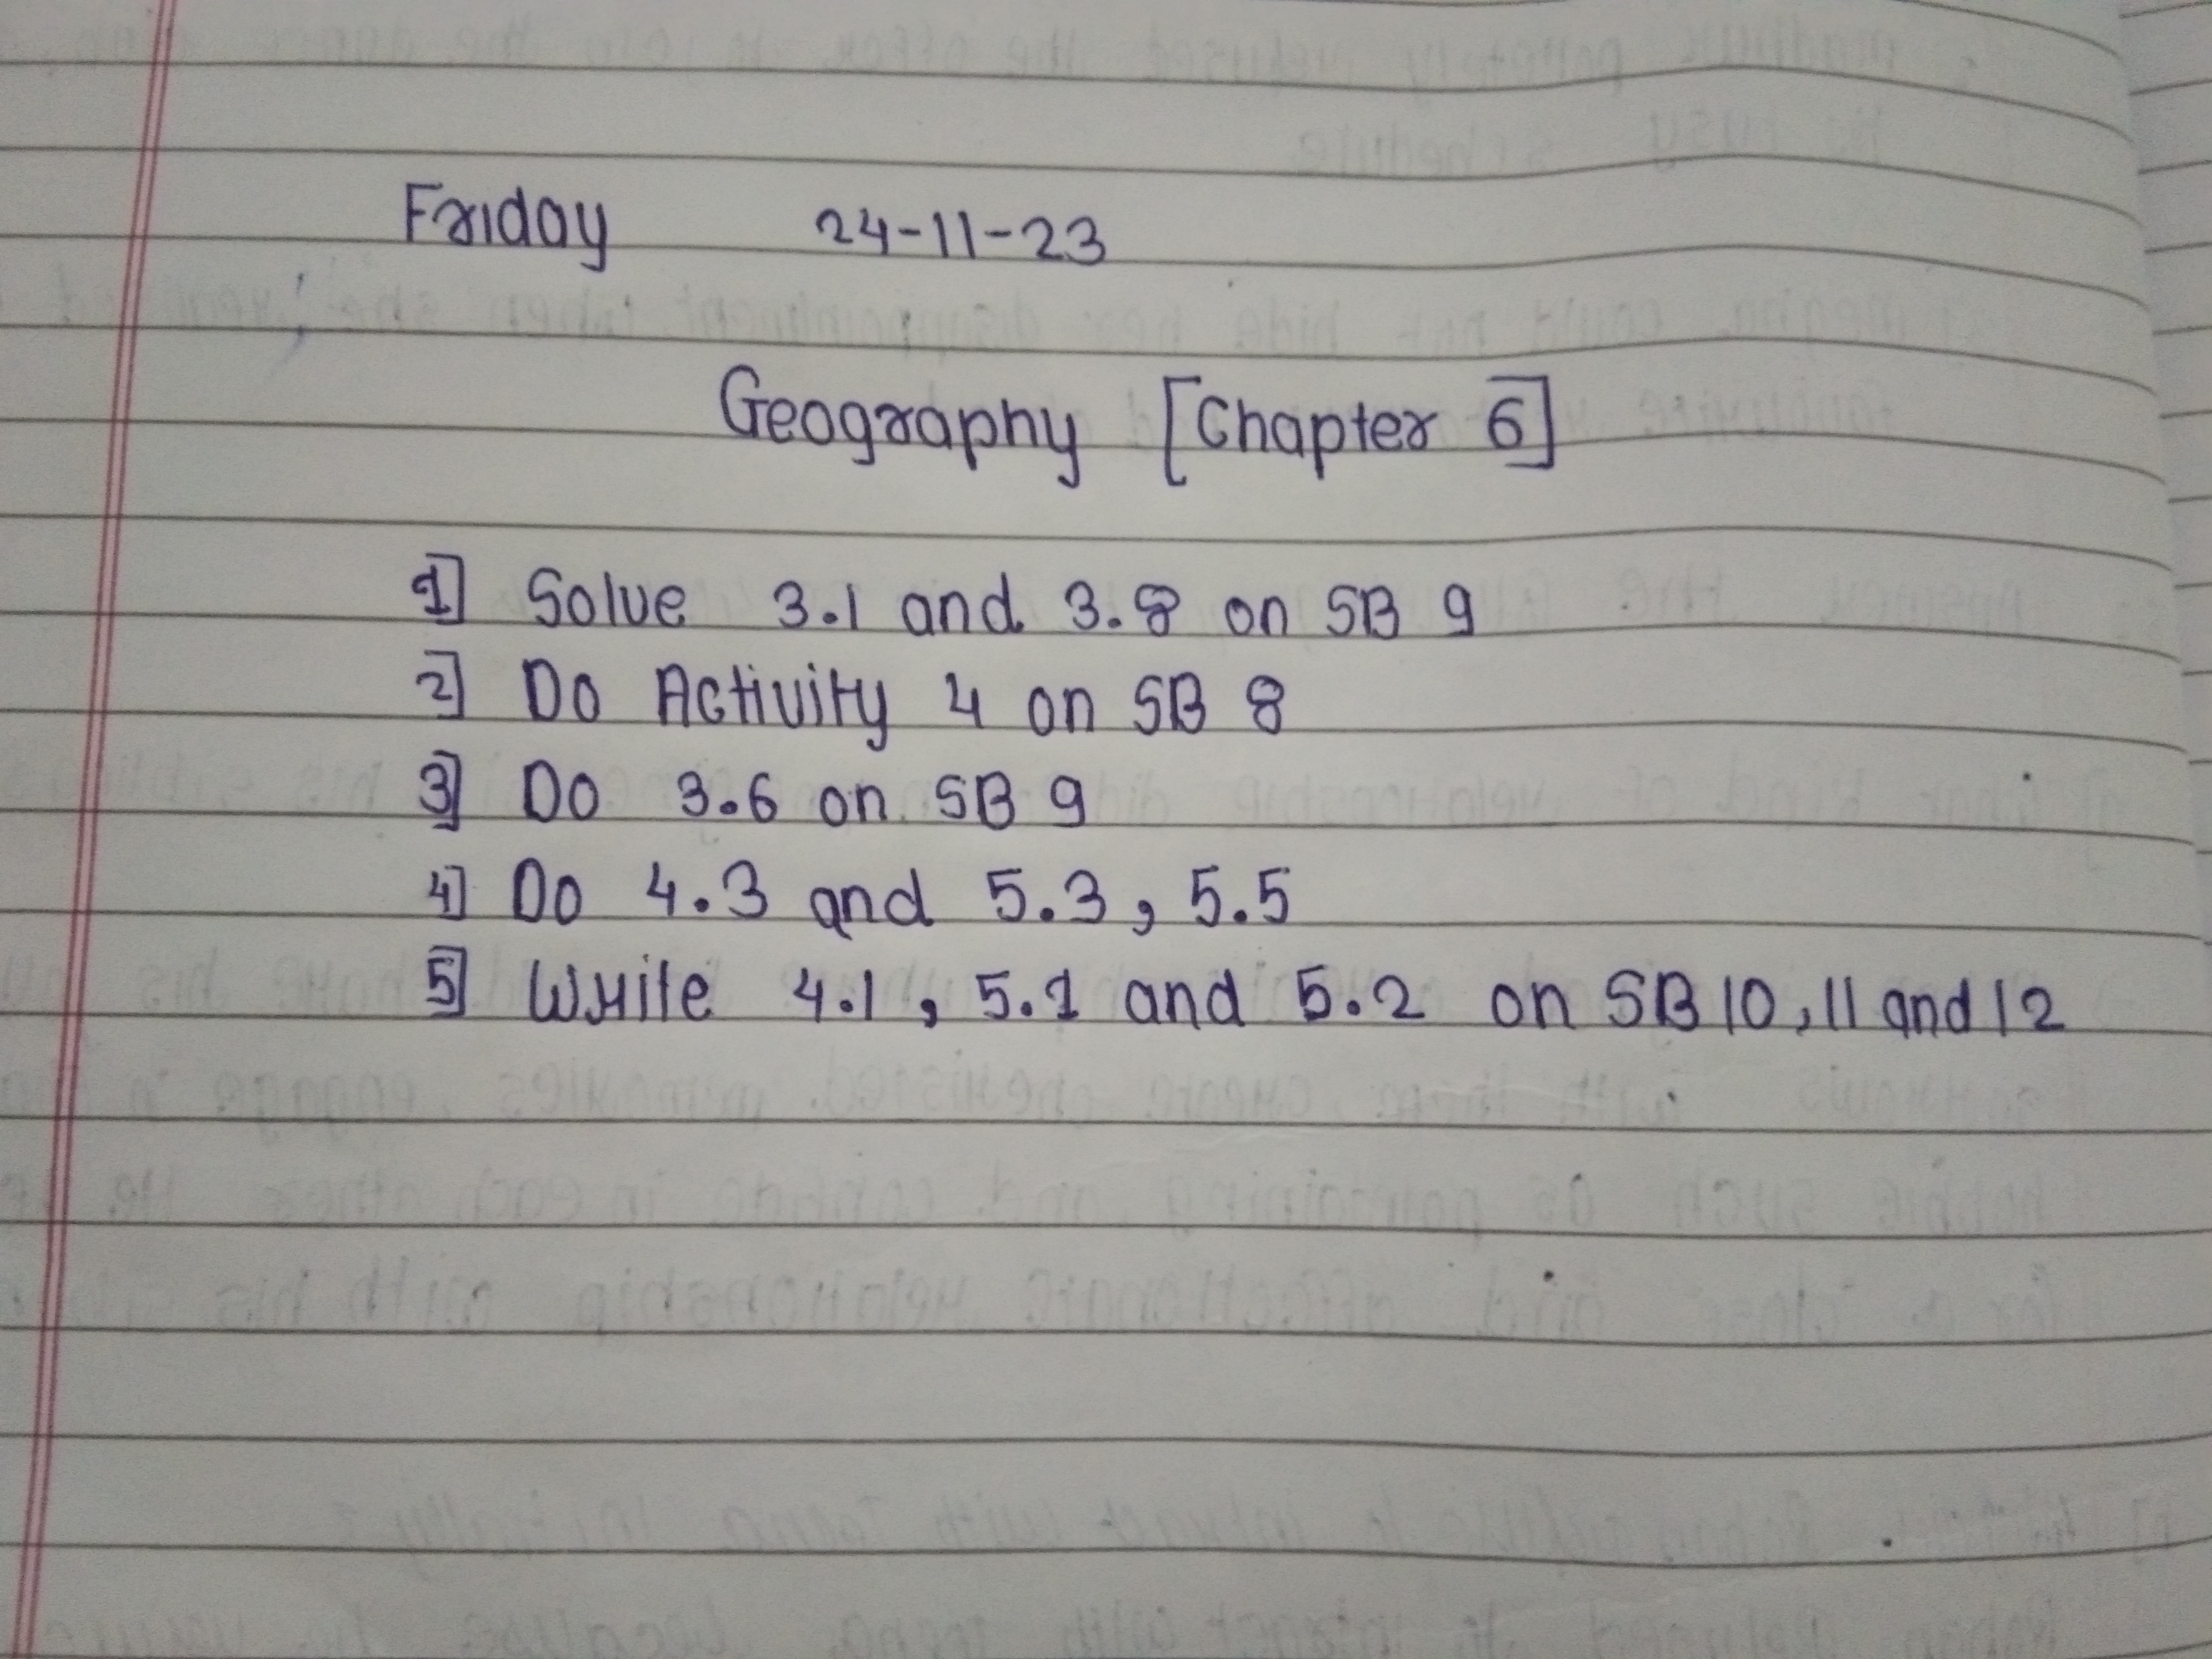 Friday 24-11-23
Geography [Chapter 6]
1] Solve 3.1 and 3.8 on SB 9
2] Do Activity 4 on SB 8
3] Do 3.6 on SB 9
4] Do 4.3 and 5.3, 5.5
5] Write 4.1, 5.1 and 5.2 on SB 10, 11 and 12